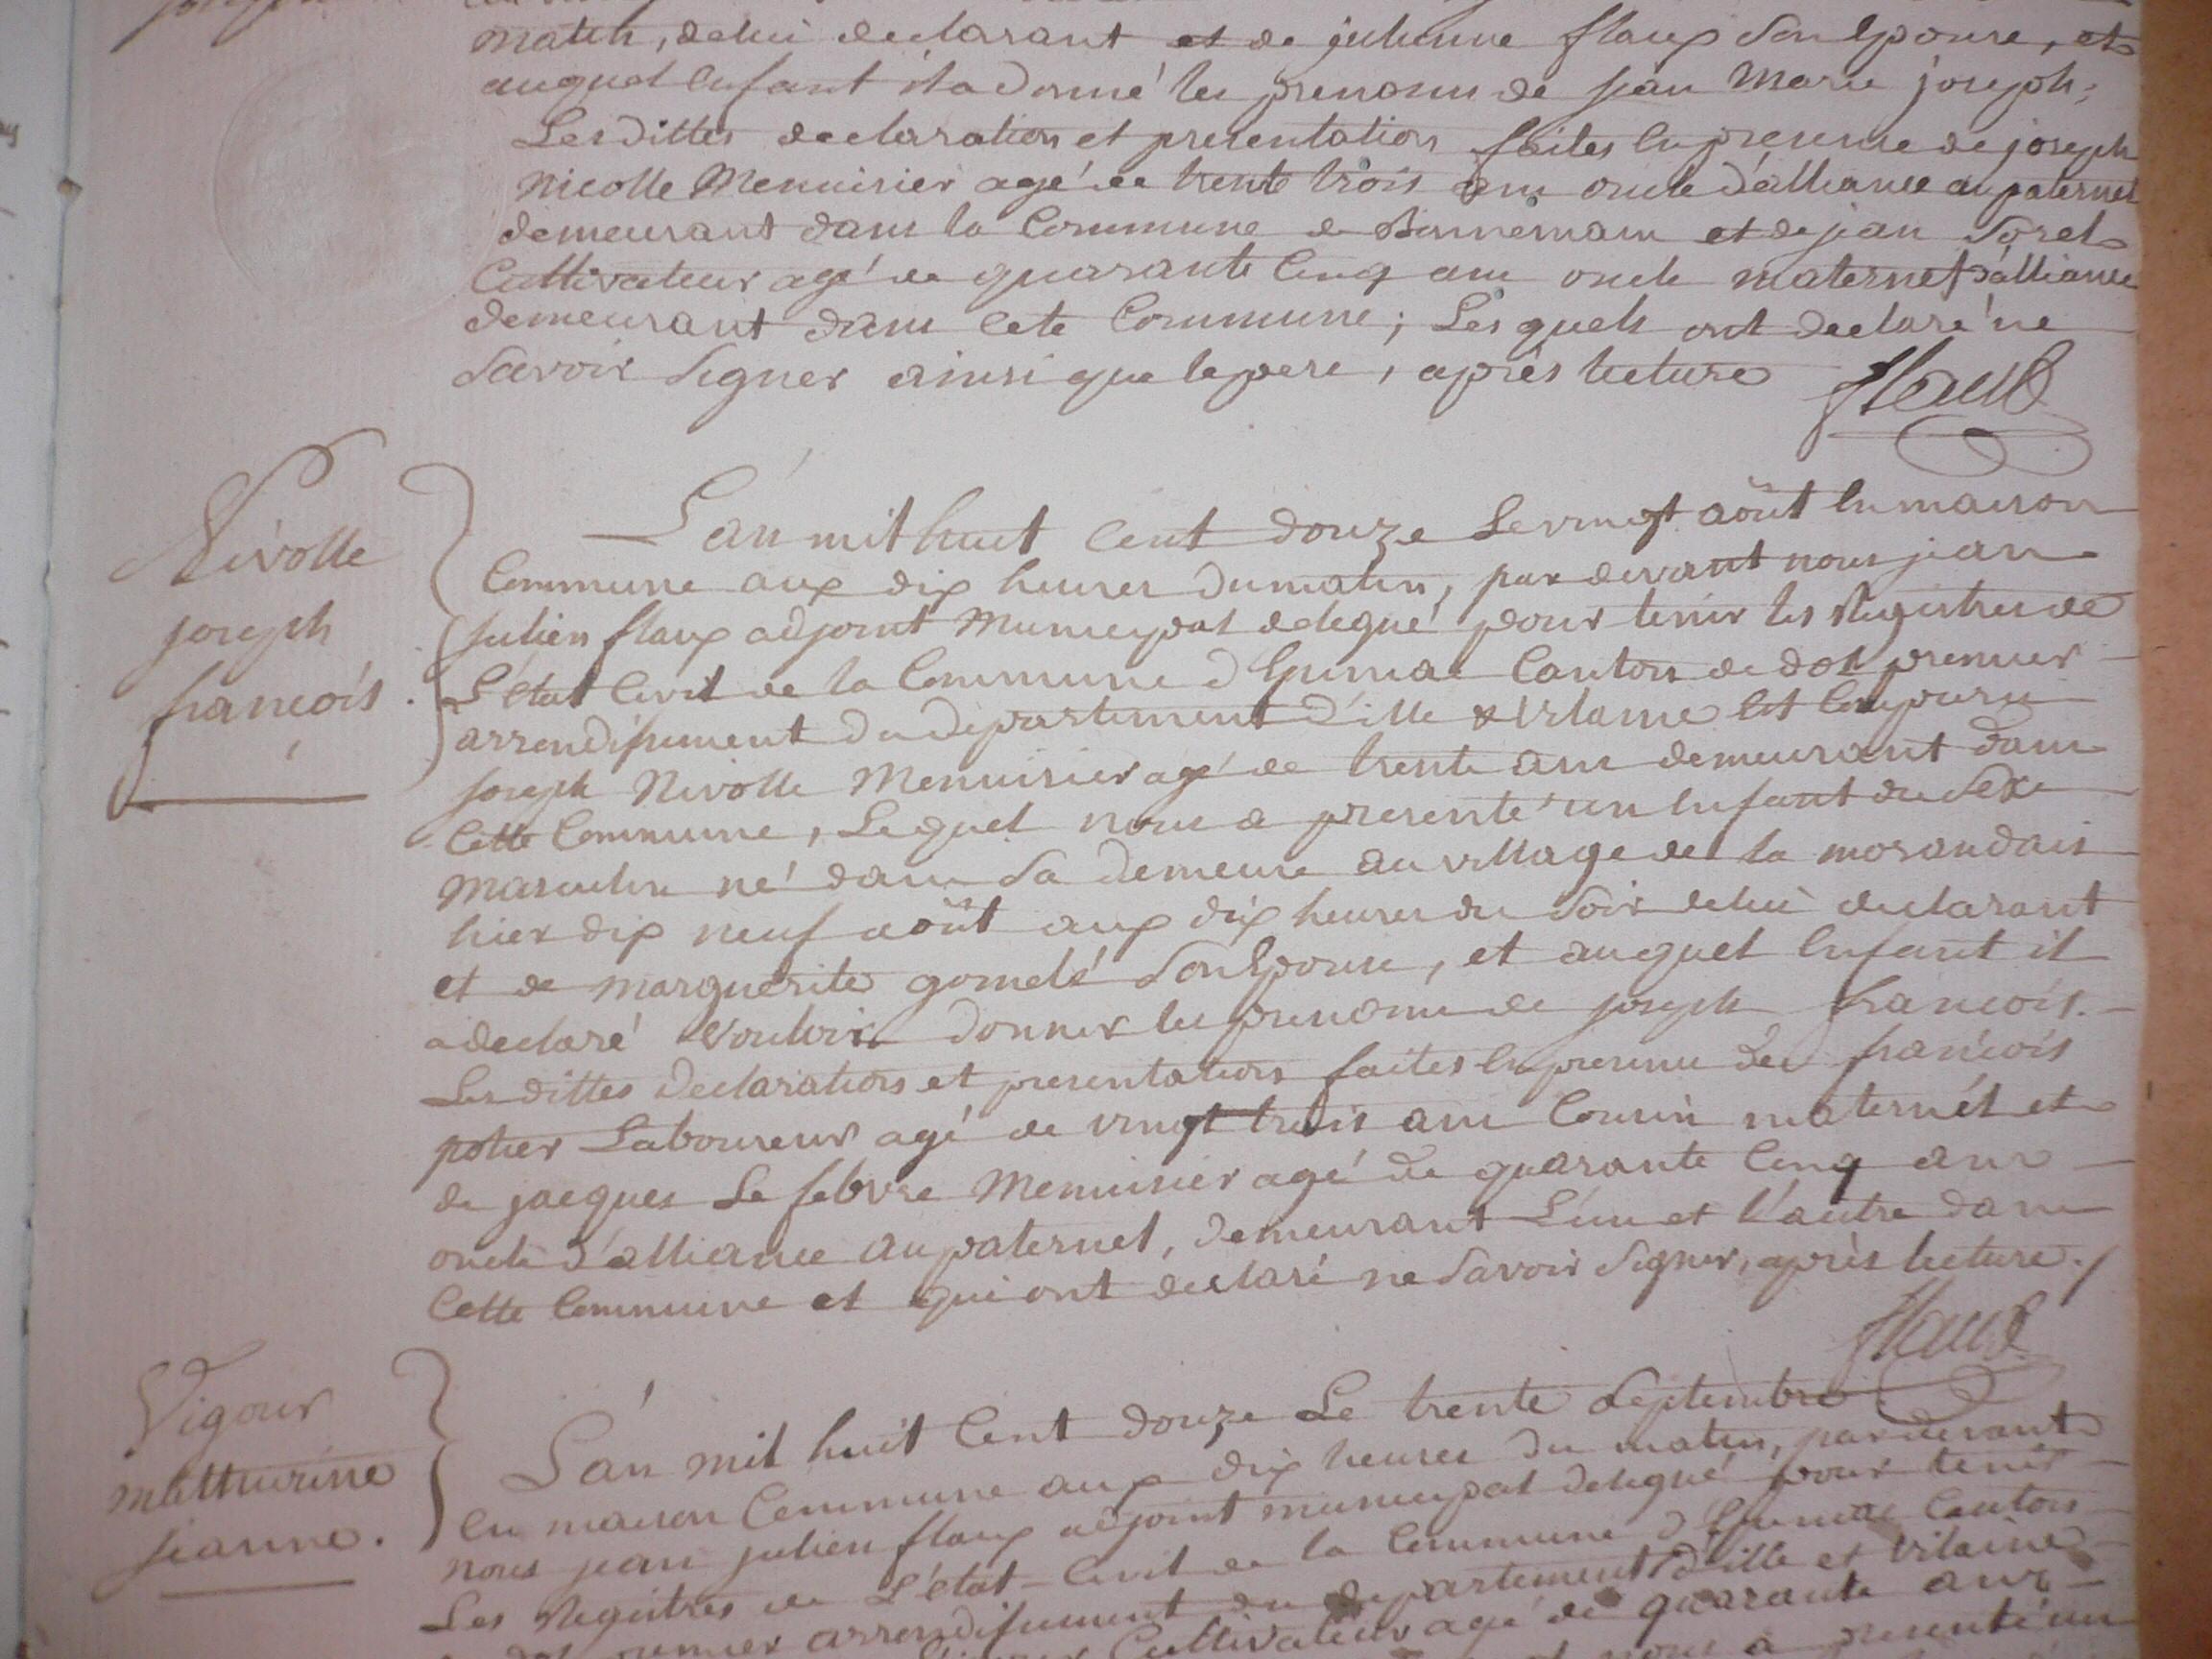 matin, delui declarant et de julienne flaux son Epouse, et
auquel Enfant il a donné les prenoms de jean Marie joseph;
Les dittes declaration et presentation faites En presence de joseph
Nicolle Menuisier agé de trente trois ans oncle d'alliance au paternel
demeurant dans la Commune de Bonnemain et de jean Sorel
Cultivateur agé de quarante Cinq ans oncle maternel d'alliance
demeurant dans Cete Commune; Les quels ont declaré ne
Savoir Signer ainsi que le pere, après lecture
flaux
Nivolle
joseph
françois.
L'an mil huit Cent douze Le vingt août En maison
Commune aux dix heures du matin, par devant nous jean
julien flaux adjoint Municipal delegué pour tenir les Registres de
L'état Civil de la Commune d'Epiniac Canton de dol premier
arrondissement du departement d'ille & vilaine Est Comparu
joseph Nivolle Menuisier agé de trente ans demeurant dans
Cette Commune, Lequel nous a presenté un Enfant du Sexe
Masculin né dans Sa demeure au village de la morandais
hier dix neuf août aux dix heures du Soir delui declarant
et de marguerite gomelé Son Epouse, et auquel Enfant il
a declaré vouloir donner les prenoms de joseph françois.
Les dittes declaration et presentation faites En presence de françois
potier Laboureur agé de vingt trois ans Cousin maternél et
de jacques Le febvre Menuisier agé de quarante Cinq ans
oncle d'alliance au paternel, demeurant L'un et L'autre dans
Cette Commune et qui ont declaré ne Savoir Signer, après lecture./
flaux
Vigour
matthurinne
jeanne.
L'an mil huit Cent douze Le trente Septembre
En maison Commune aux dix heures du matin, par devant
nous jean julien flaux adjoint municipal delegué pour tenir
Les Registres de L'état-Civil de la Commune d'Epiniac Canton
de dol premier arrondissement du departement d'ille et vilaine
Vigour Cultivateur agé de quarante ans
nous a presenté un